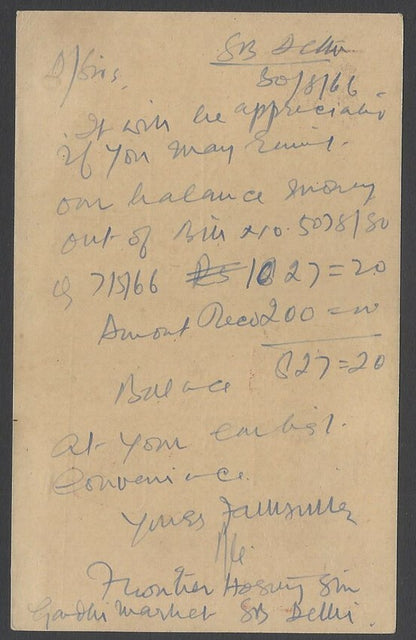 SB Delhi
30/8/66
D/Sirs,
It will be appreciated
if you may remit
our balance money
out of Bill No. 5078/80
of 7/5/66 Rs 1027=20
Amount Recd 200=00
827=20
Balance
at your earliest
Convenience.
Yours faithfully
Frontier Hosiery
Gandhi Market SB Delhi.